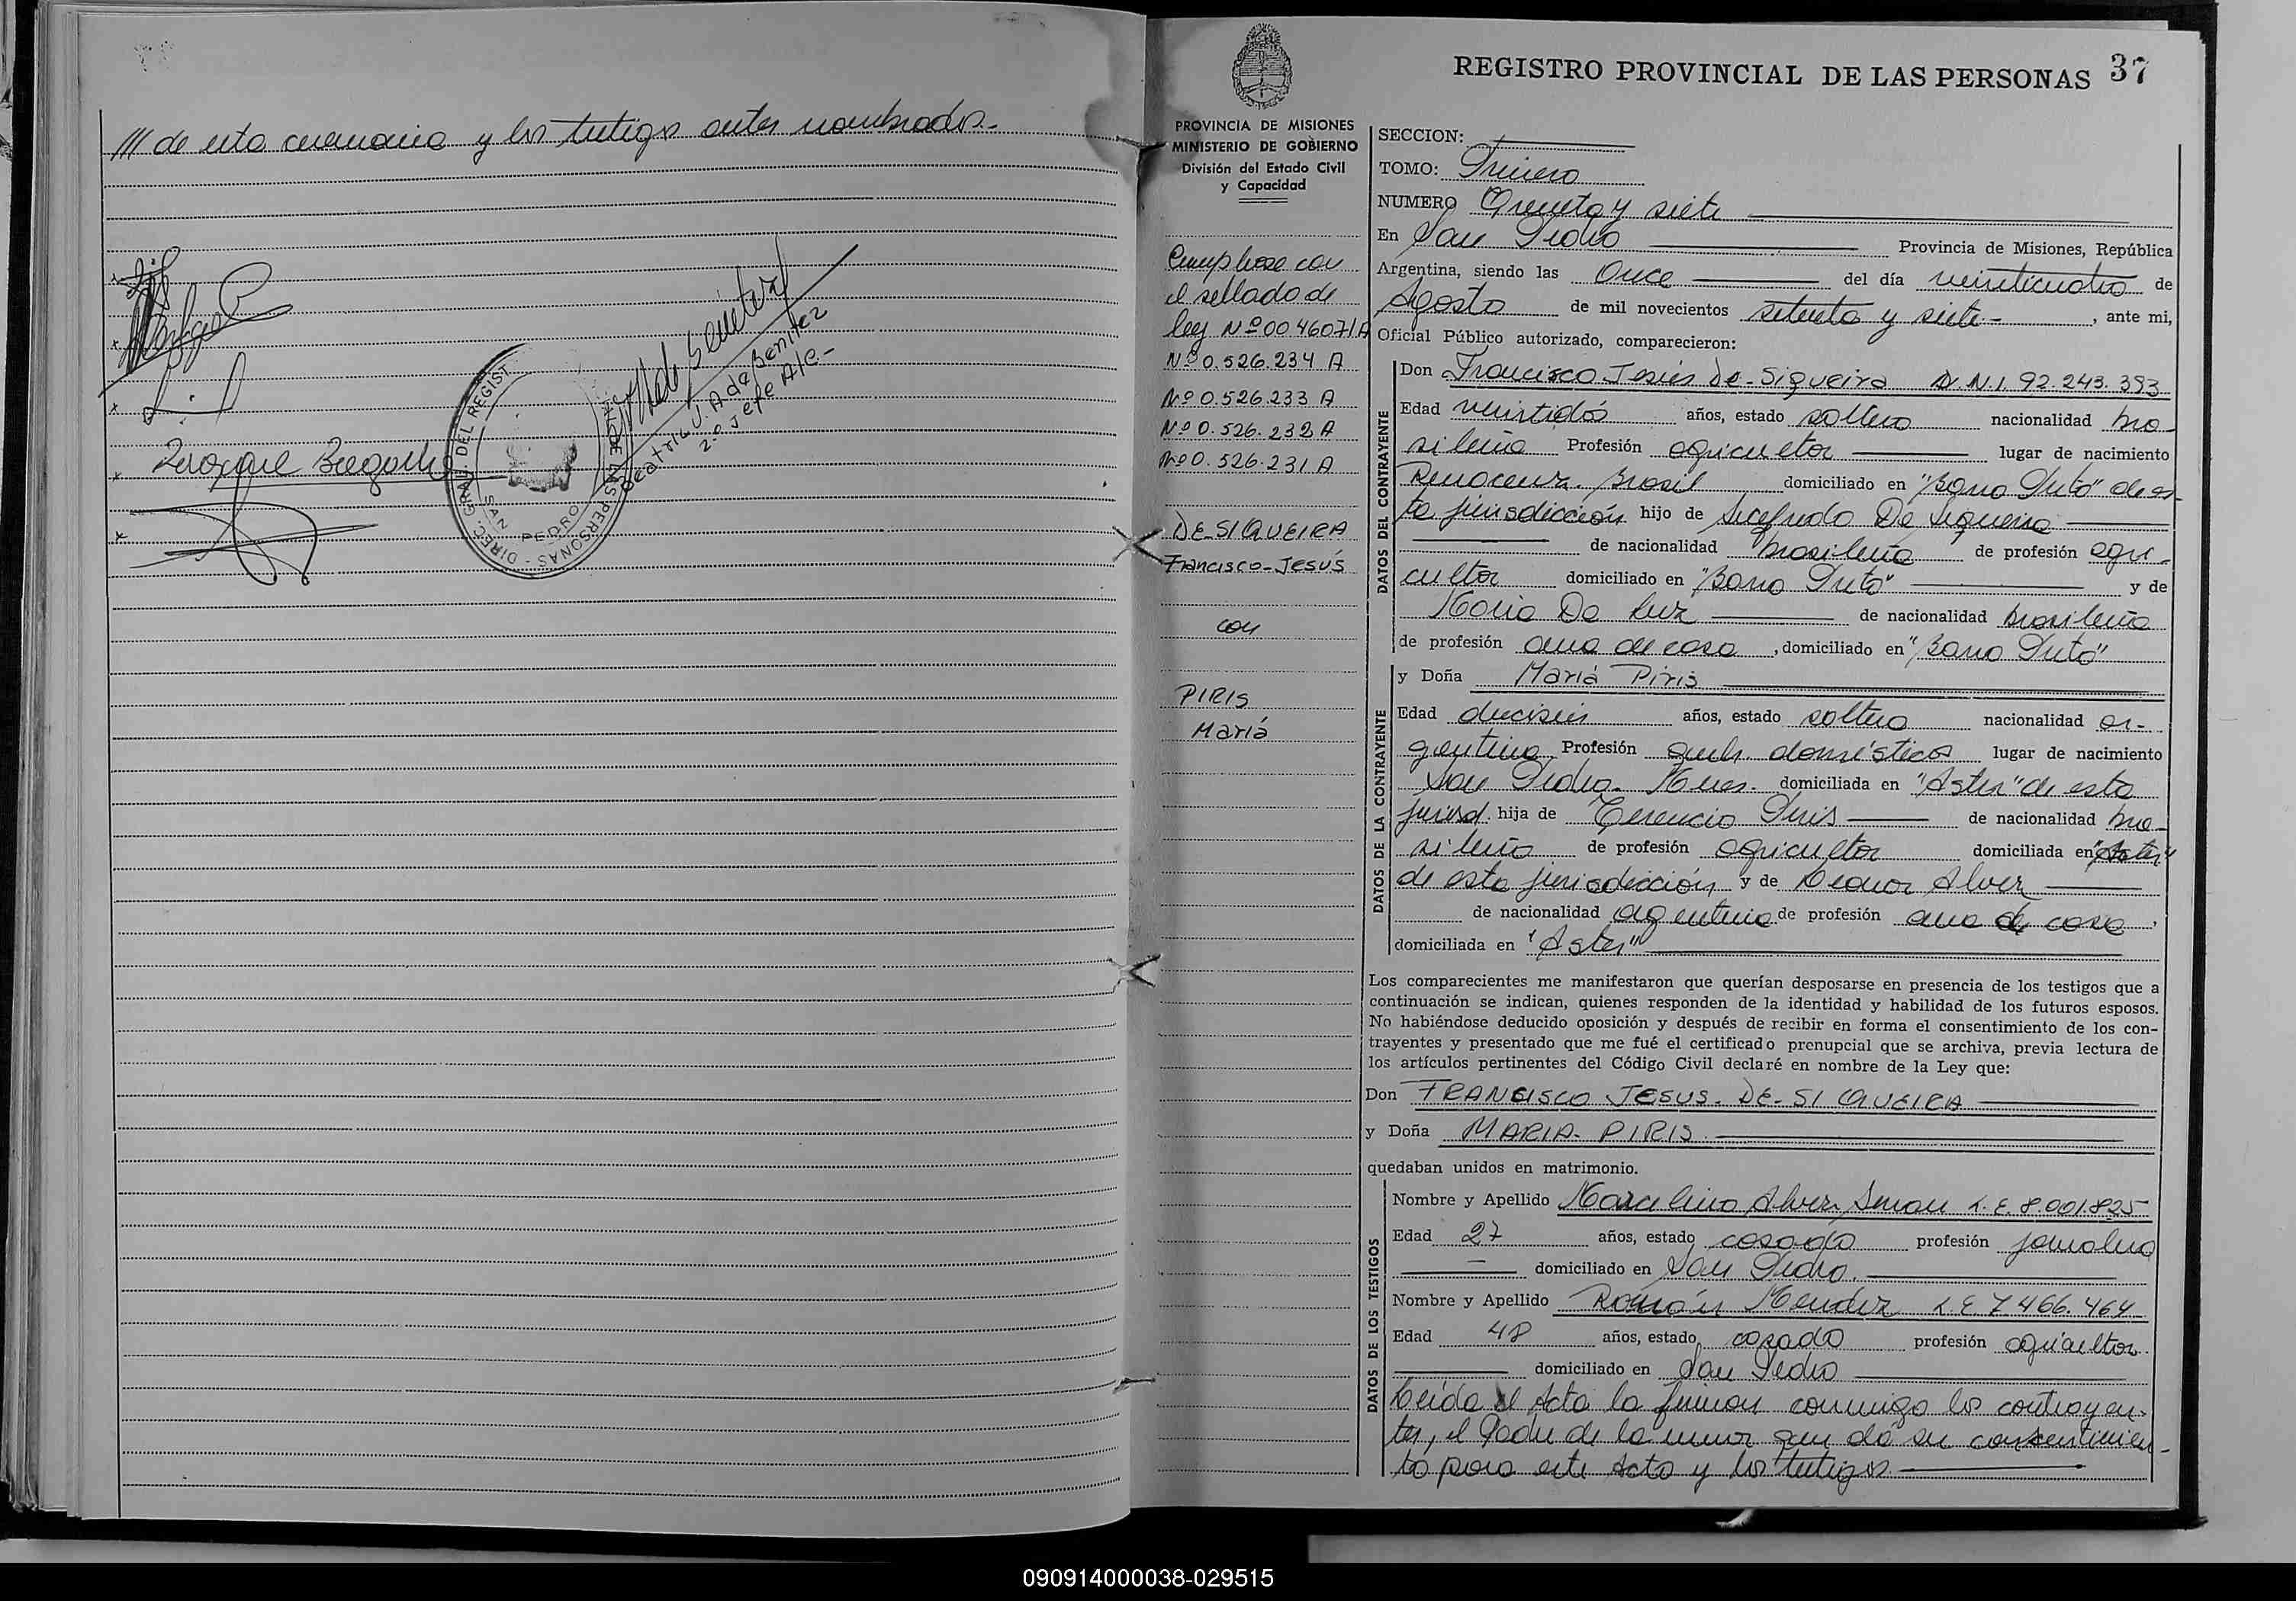 /// de esta ceremonia y los testigos antes nombrados.-
DIREC. GRAL. DEL REGIST
DE LAS PERSONAS
SAN PEDRO
Beatriz J. Ada Benitez
2º Jefe Ate.-
REGISTRO PROVINCIAL DE LAS PERSONAS 37
PROVINCIA DE MISIONES
MINISTERIO DE GOBIERNO
División del Estado Civil
y Capacidad
Cumplese con
el sellado de
ley Nº 0046071A
Nº 0.526.234 A
Nº 0.526.233 A
Nº 0.526.232 A
Nº 0.526.231 A
DE-SIQUEIRA
Francisco-Jesús
con
PIRIS
Mariá
SECCION:
TOMO: Primero
NUMERO Treinta y siete
En San Pedro Provincia de Misiones, República
Argentina, siendo las Once del día veinticuatro de
Agosto de mil novecientos setenta y siete.- , ante mi,
Oficial Público autorizado, comparecieron:
DATOS DEL CONTRAYENTE
Don Francisco Jesús De-Siqueira D.N.I. 92.243.393
Edad veintidós años, estado soltero nacionalidad bra-
sileña Profesión agricultor lugar de nacimiento
Brasil domiciliado en "Bano Puto" de es-
ta jurisdicción hijo de Sicefredo De Siqueira
de nacionalidad brasileña de profesión agri-
cultor domiciliado en "Bano Puto" y de
Maria Da Luz de nacionalidad brasileña
de profesión ama de casa , domiciliado en "Bano Puto"
DATOS DE LA CONTRAYENTE
y Doña Mariá Piris
Edad dieciseis años, estado soltera nacionalidad ar-
gentina Profesión queh. domésticos lugar de nacimiento
San Pedro. Mnes. domiciliada en "Aster" de esta
jurisd. hija de Terencio Piris de nacionalidad bra-
sileña de profesión agricultor domiciliada en "Aster"
de esta jurisdicción y de Leonor Alvez
de nacionalidad argentina de profesión ama de casa ,
domiciliada en "Aster"
Los comparecientes me manifestaron que querían desposarse en presencia de los testigos que a
continuación se indican, quienes responden de la identidad y habilidad de los futuros esposos.
No habiéndose deducido oposición y después de recibir en forma el consentimiento de los con-
trayentes y presentado que me fué el certificado prenupcial que se archiva, previa lectura de
los artículos pertinentes del Código Civil declaré en nombre de la Ley que:
Don FRANCISCO JESUS. DE-SIQUEIRA
y Doña MARIA- PIRIS
quedaban unidos en matrimonio.
DATOS DE LOS TESTIGOS
Nombre y Apellido Marcelino Alvez L.E. 8.001.825
Edad 27 años, estado casado profesión jornalero
domiciliado en San Pedro.
Nombre y Apellido Román Mendez L.E 7 466.464
Edad 48 años, estado casado profesión agricultor.
domiciliado en San Pedro
Leída el Acta la firman conmigo los contrayen-
tes, el Padre de la menor que dá su consentimien-
to para este Acto y los testigos
090914000038-029515